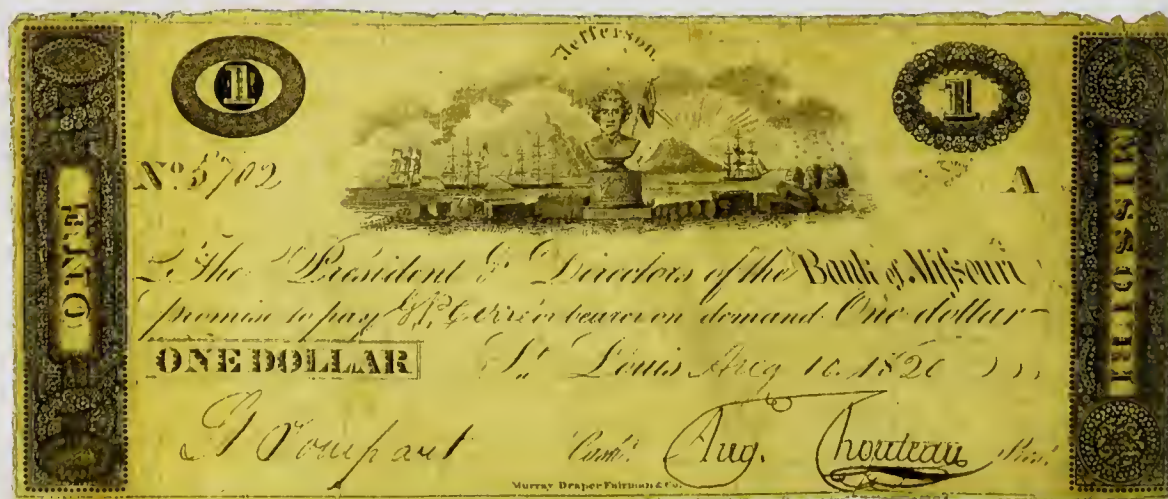 Jefferson
1
1
Nº 5702
A
ONE
MISSOURI
The President & Directors of the Bank of Mifsouri
promise to pay or bearer on demand One dollar
ONE DOLLAR St. Louis Aug 10 1820
Cashr. Aug. Chouteau Prest.
Murray Draper Fairman & Co.